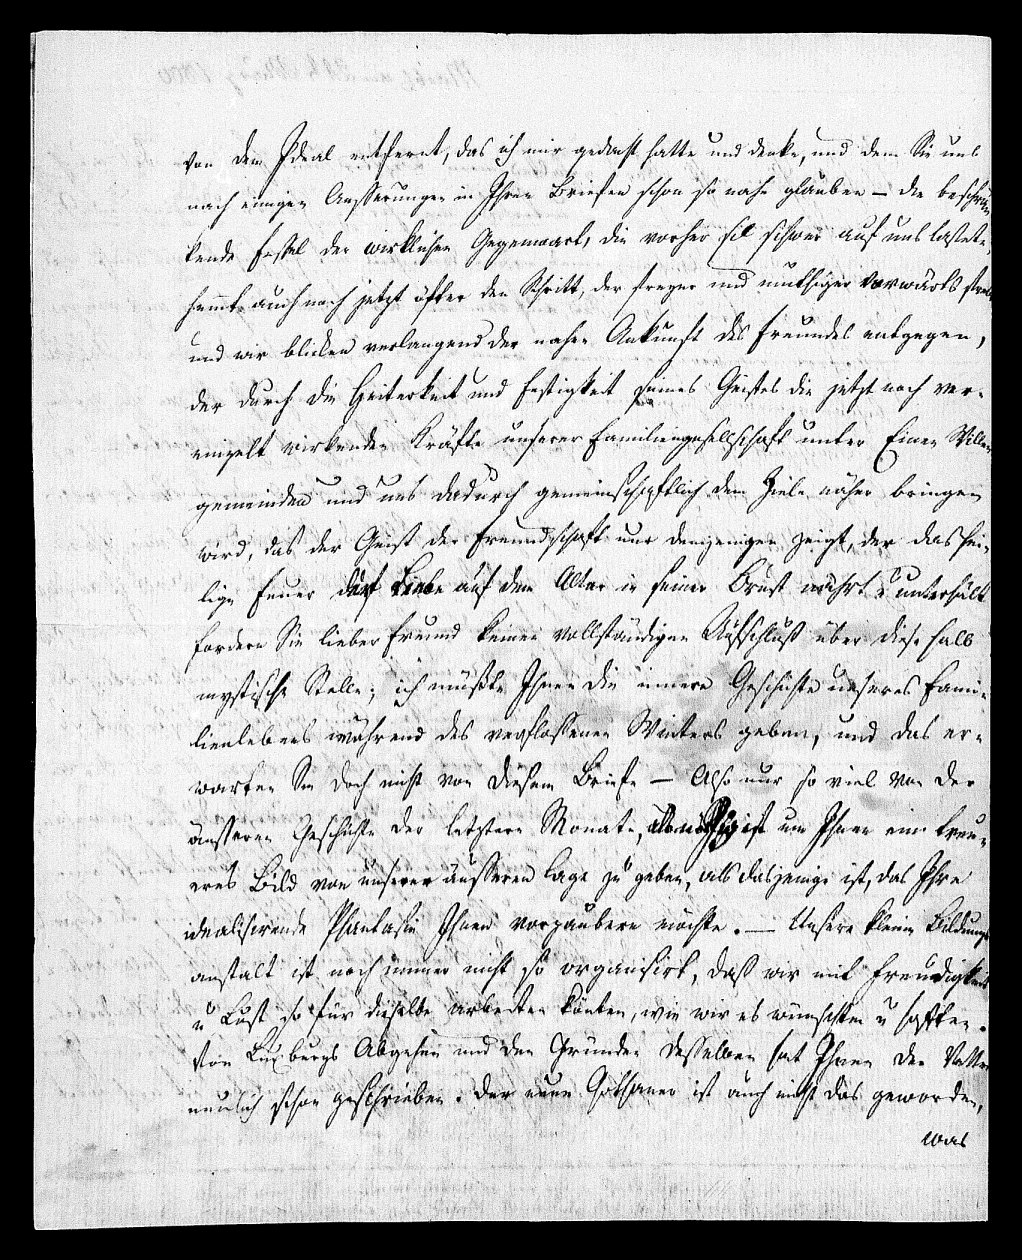 von dem Ideal entfernt, das ich mir gedacht hatte und denke, und dem Sie uns
nach einigen Aeusserungen in Ihren Briefen schon so nahe glauben – die beschrän
kende Fessel der wirklichen Gegenwart, die vorher so schwer auf uns lastete,
hemt auch noch jetzt öfter den Schritt, der freyer und muthiger vorwärts strebt
und wir blicken verlangend der nahen Ankunft des Freundes entgegen,
der durch die Heiterkeit und Festigkeit seines Geistes die jetzt noch ver-
einzelt wirkenden Kräfte unserer Familiengesellschaft unter Einen Willen
und uns dadurch gemeinschaftlich dem Ziele näher bringen
wird, das der Geist der Freundschaft nur demjenigen zeigt, der das hei-
lige Feuer der Liebe auf dem Altar in seiner Brust nährt u unterhält
fordern Sie lieber Freund keinen vollständigen Aufschluß über diese halb
mystische Stelle; ich müßte Ihnen die innere Geschichte unseres Fami-
lienlebens während des verflossenen Winters geben, und das er-
warten Sie doch nicht von diesem Briefe – Also nur so viel von der
äusseren Geschichte der letztern Monate, als nöthig ist um Ihnen ein treu-
eres Bild von unserer äusseren Lage zu geben, als dasjenige ist, das Ihre
idealisirende Phantasie Ihnen vorzaubern möchte. – Unsere kleine Bildungs
anstalt ist noch immer nicht so organisirt, daß wir mit Freudigkeit
u Lust so für dieselbe arbeiten könten, wie wir es wünschten u hofften.
Von Luxburgs Abgehen und den Gründen desselben hat Ihnen der Vatter
neulich schon geschrieben. Der neue Gothaner ist auch nicht das geworden,
was